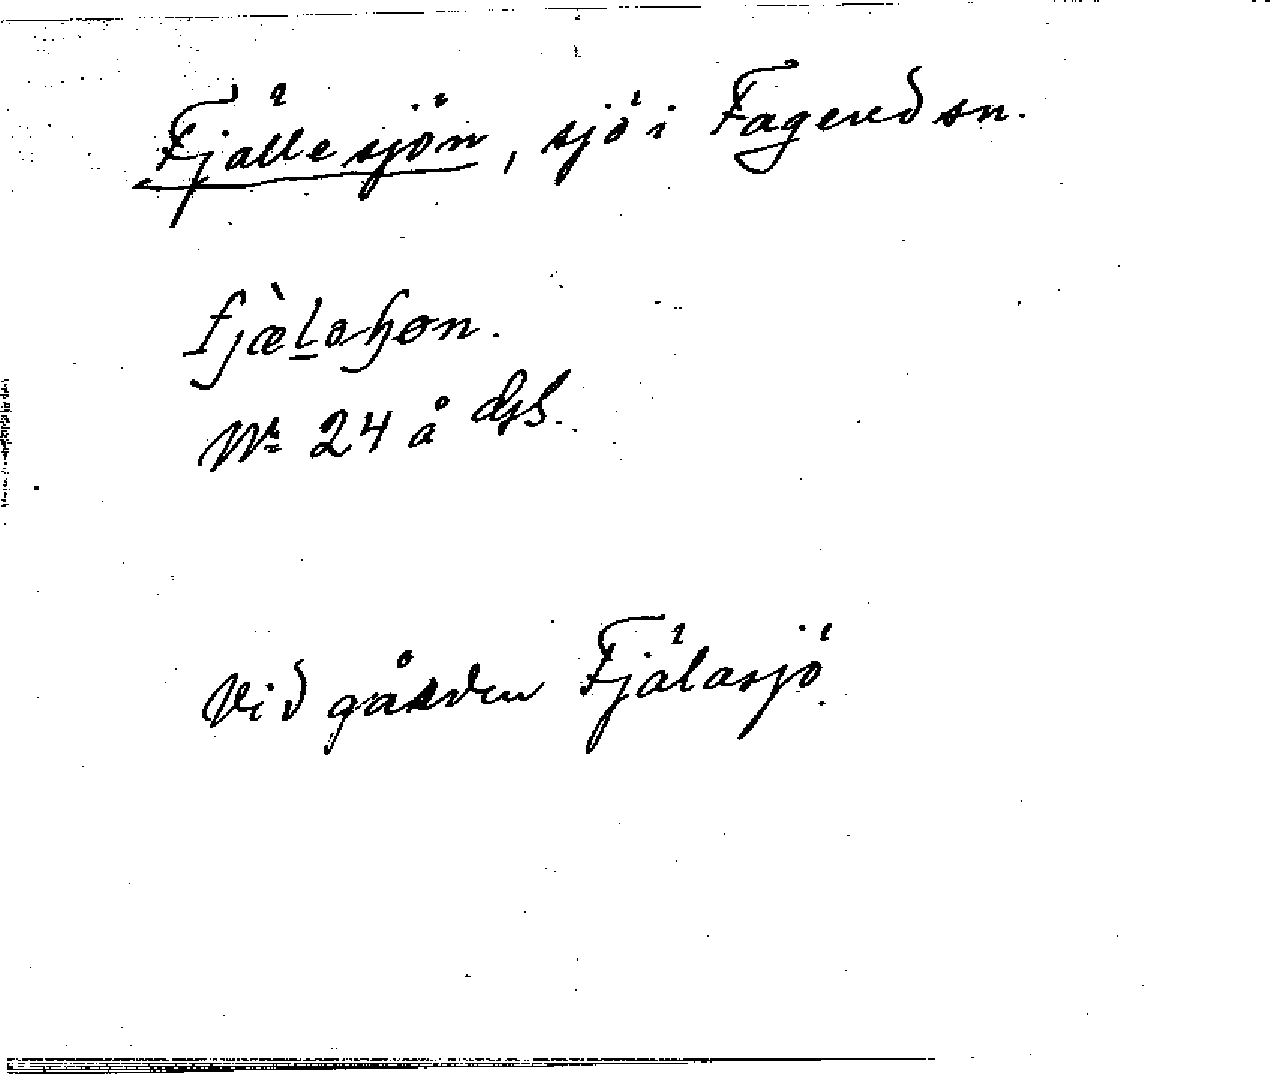 Fjällesjön, sjö i Fagered sn.
fjæ̀l̠aɧøn.
Nr 24 å dgs.
Vid gården Fjälasjö.